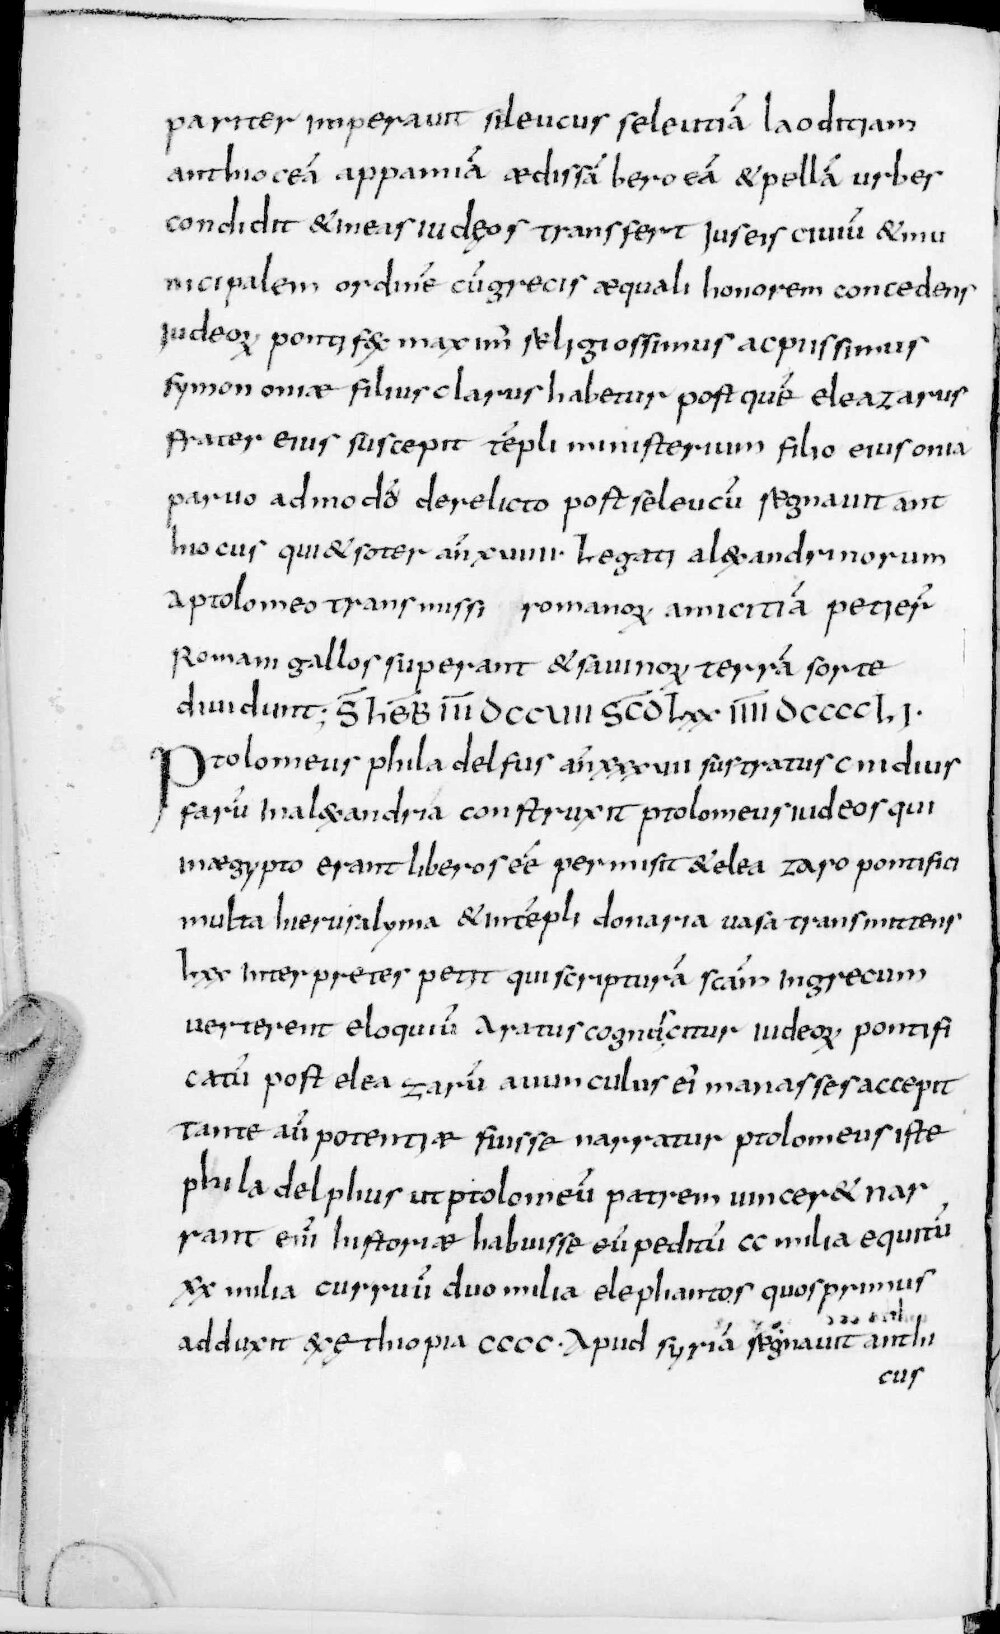 pariter imperauit sileucus seleutiā laoditiam
anthioceā appamiā ædissā beroeā &pellā urbes
condidit &ineas iudęos transfert Iuseis ciuiū &mu
nicipalem ordinē cūgrecis æquali honorem concedens
Iudeoꝝ pontif& maxim̄ religiossimus acpiissimus
symon oniæ filius clarus habetur post quē eleazarus
frater eius suscepit tēpli ministerium filio eius onia
paruo admodū derelicto post seleucū regnauit ant
hiocus qui&soter añxuiiii· Legati al&andrinorum
Aptolomeo transmissi romanoꝝ amicitiā petier̄
Romani gallos superant &sauinoꝝ terrā sorte
diuidunt; S̄ħēƀ īīī dccuiii Sc̄d̄lxx īīīī dccccli·
Ptolomeus philadelfus añxxxuiii sustratus cnidius
farū Inal&andria construxit ptolomeus iudeos qui
inægypto erant liberos eē permisit &elea zaro pontifici
multa hierusalyma &intēpli donaria uasa transmittens
Lxx Interpretes petit qui scripturā scām Ingrecum
uerterent eloquiū Aratus cognoscitur iudeoꝝ pontifi
catū post elea zarū auunculus ei manasses accepit
tante aū potentiæ fuisse narratur ptolomeus iste
philadelphus ut ptolomeū patrem uincer& nar
rant eni historiæ habuisse eū peditū cc milia equitū
xx milia curruū duo milia elephantos quos primus
adduxit &ęthiopia cccc· Apud syriā regnauit anthi
cus